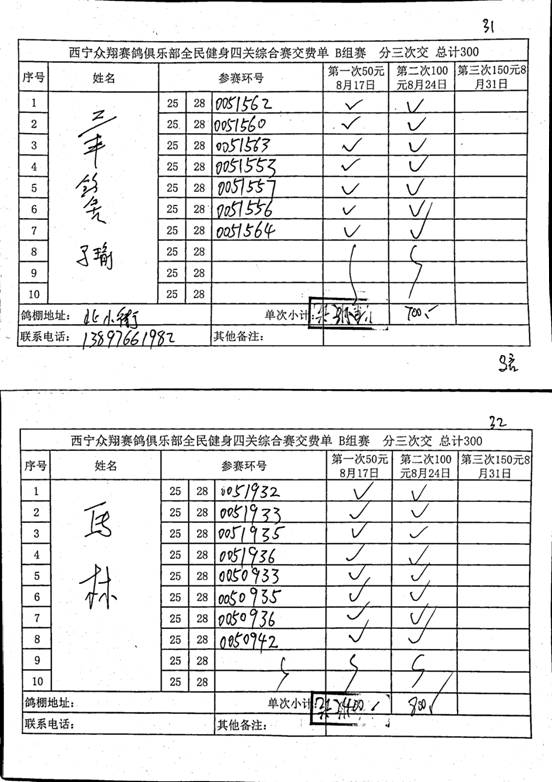 31
西宁众翔赛鸽俱乐部全民健身四关综合赛交费单 B组赛 分三次交 总计300
序号 姓名 参赛环号 第一次50元8月17日 第二次100元8月24日 第三次150元8月31日
1 25 28 0051562 ✓ ✓
2 25 28 0051560 ✓ ✓
3 25 28 0051563 ✓ ✓
4 25 28 0051553 ✓ ✓
5 25 28 0051557 ✓ ✓
6 25 28 0051556 ✓ ✓
7 25 28 0051564 ✓ ✓
8 25 28
9 25 28
10 25 28
鸽棚地址: 北小街 单次小计: 700
联系电话: 13897661982 其他备注:
32
西宁众翔赛鸽俱乐部全民健身四关综合赛交费单 B组赛 分三次交 总计300
序号 姓名 参赛环号 第一次50元8月17日 第二次100元8月24日 第三次150元8月31日
马林
1 25 28 0051932 ✓ ✓
2 25 28 0051933 ✓ ✓
3 25 28 0051935 ✓ ✓
4 25 28 0051936 ✓ ✓
5 25 28 0050933 ✓ ✓
6 25 28 0050935 ✓ ✓
7 25 28 0050936 ✓ ✓
8 25 28 0050942 ✓ ✓
9 25 28
10 25 28
鸽棚地址: 单次小计: 400 800
联系电话: 其他备注: